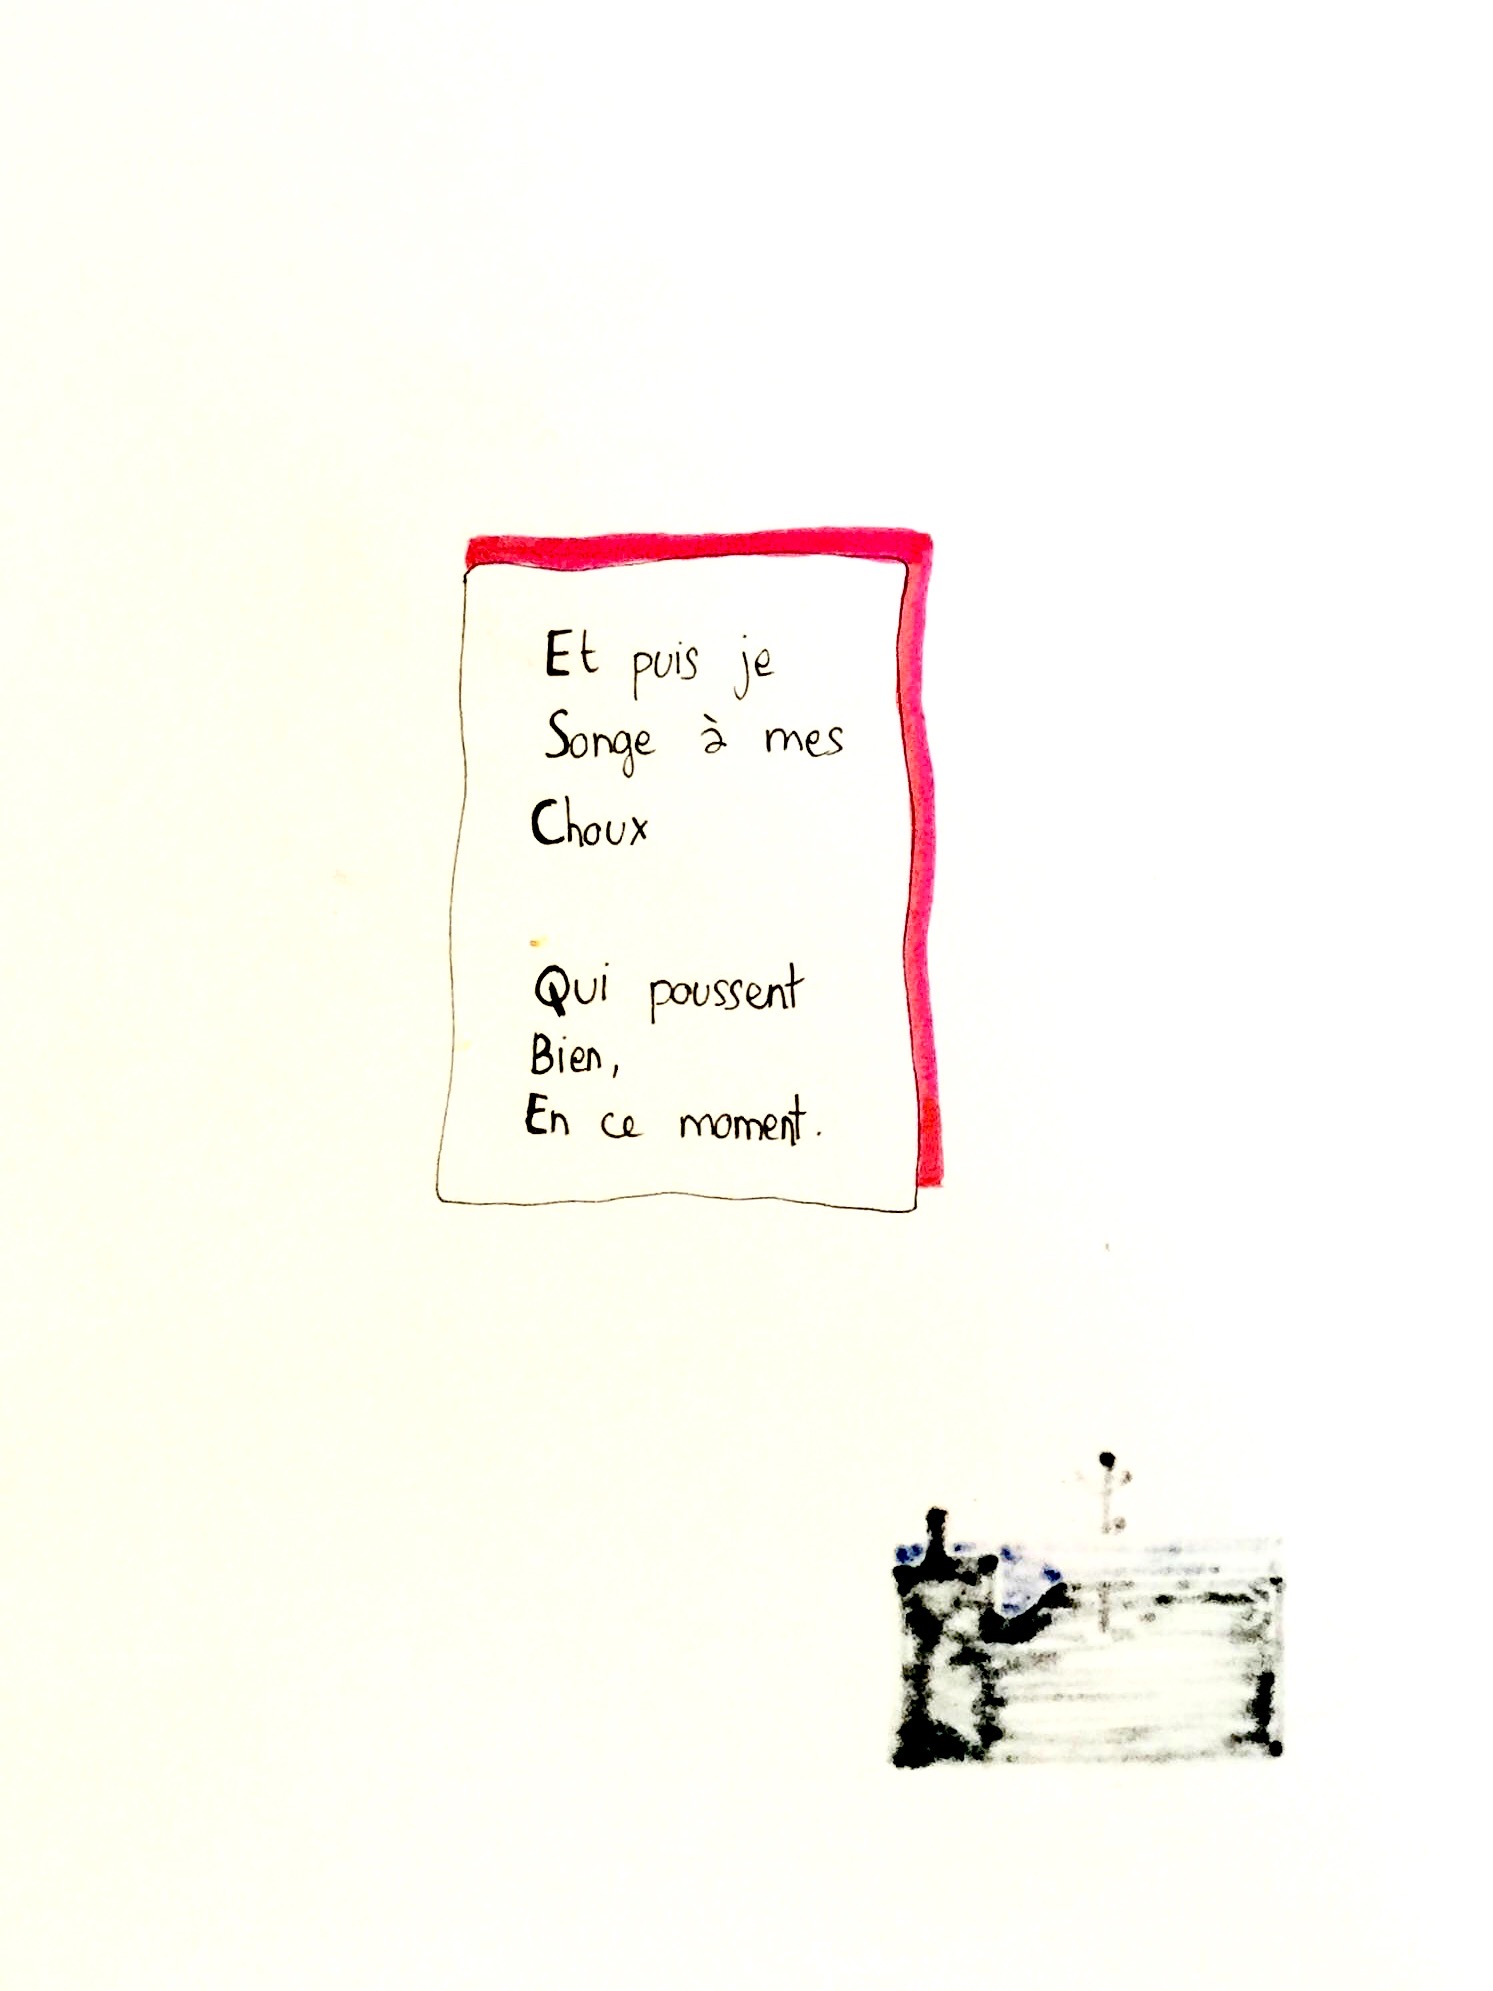 Et puis je
Songe à mes
Choux
Qui poussent
Bien,
En ce moment.